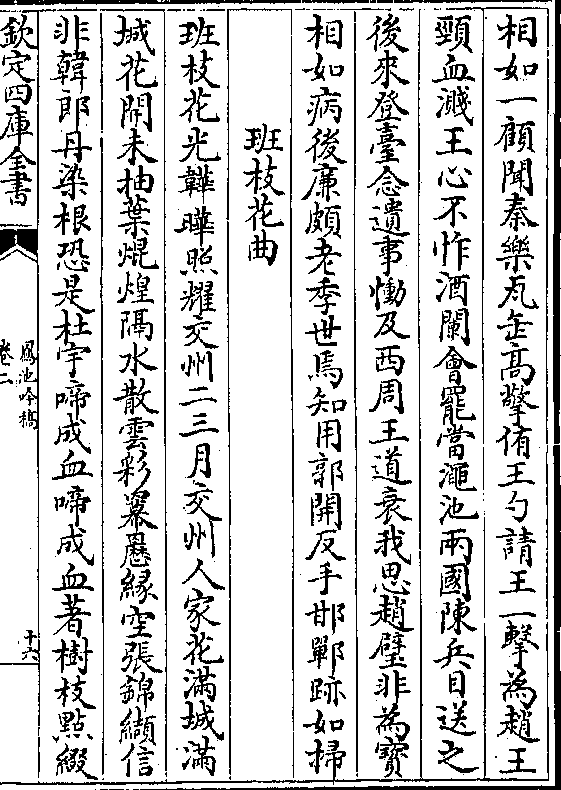 相如一顧聞秦樂瓦缶高擎侑王勺請王一擊為趙王
頸血濺王心不怍酒闌會罷當澠池兩國陳兵目送之
後來登臺念遺事慟及西周王道衰我思趙璧非為寶
相如病後廉頗老季世焉知用郭開反手邯鄲跡如掃
班枝花曲
班枝花光韡曄照耀交州二三月交州人家花滿城滿
城花開未抽葉焜煌隔水散雲彩冪䍥緣空張錦纈信
非韓郎丹染根恐是杜宇啼成血啼成血著樹枝點綴
欽定四庫全書
鳳池吟稿
卷二
十六